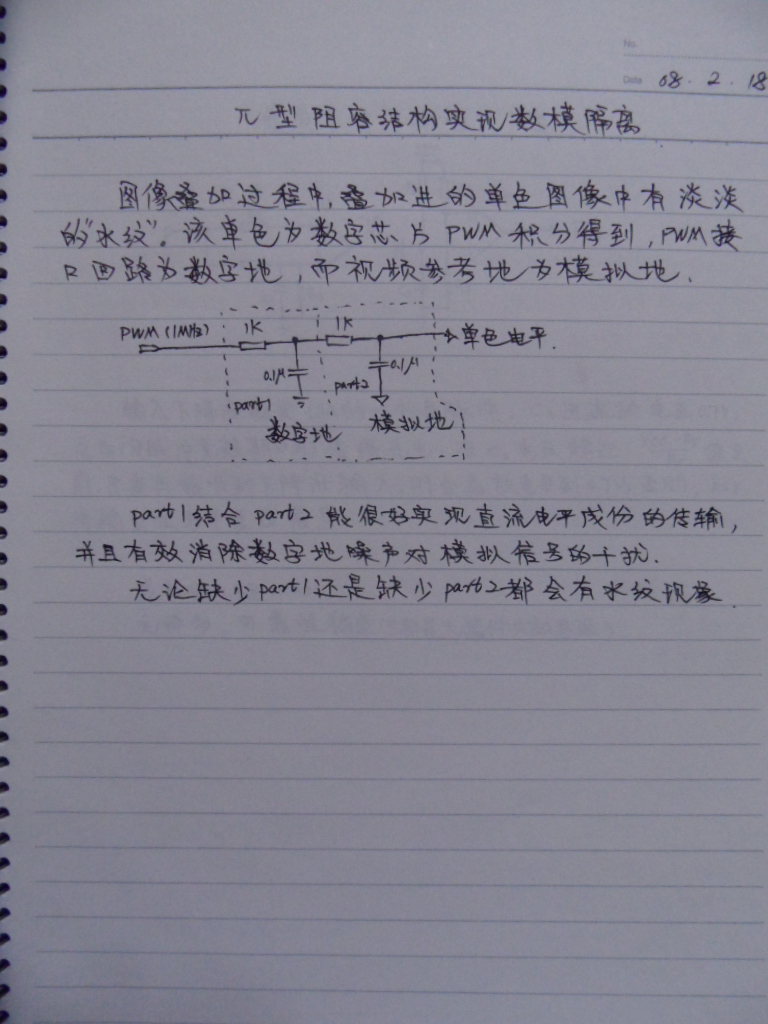 No.
Date 08.2.18
π型阻容结构实现数模隔离
图像叠加过程中,叠加进的单色图像中有淡淡
的"水纹"。该单色为数字芯片PWM积分得到,PWM接
口回路为数字地,而视频参考地为模拟地.
PWM(1MHz) 1K 1K 单色电平.
0.1μ 0.1μ
part1 part2
数字地 模拟地
part1结合part2能很好实现直流电平成份的传输,
并且有效消除数字地噪声对模拟信号的干扰.
无论缺少part1还是缺少part2都会有水纹现象.